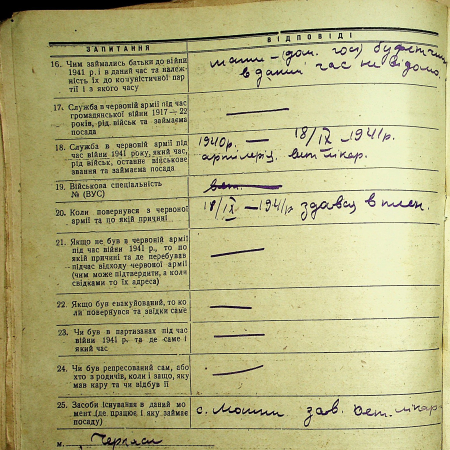 ЗАПИТАННЯ
ВІДПОВІДІ
16. Чим займались батьки до війни
1941 р. і в даний час та належ-
ність їх до комуністичної пар-
тії і з якого часу
мати – (дом. госп)
в даний час не відомо.
17. Служба в червоній армії під час
громадянської війни 1917—22
років, рід військ та займаєма
посада
—
18. Служба в червоній армії під
час війни 1941 року, який час,
рід військ, останнє військове
звання та займаєма посада
1940р. — 18/IX – 1941р.
артилерії, вет. лікар.
19. Військова спеціальність
№ (ВУС)
20. Коли повернувся з червоної
армії та по якій причині
18/IX – 1941р здався в плен.
21. Якщо не був в червоній армії
під час війни 1941 р., то по
якій причині та де перебував
підчас відходу червоної армії
(чим може підтвердити, а коли
свідками то їх адреса)
—
22. Якщо був евакуйований, то ко-
ли повернувся та звідки саме
—
23. Чи був в партизанах під час
війни 1941 р. та де саме і
який час
—
24. Чи був репресований сам, або
хто з родичів, коли і защо, яку
мав кару та чи відбув її
—
25. Засоби існування в даний мо-
мент (де працює і яку займає
посаду)
с. Мошни зав. вет. лікар-
м. Черкаси